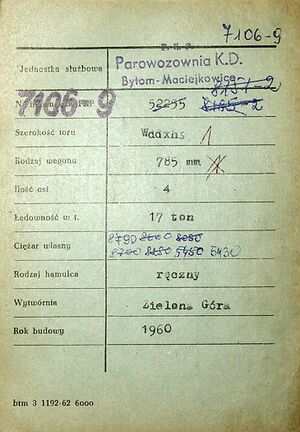 7106-9
P. K. P.
Jednostka służbowa
Parowozownia K.D.
Bytom-Maciejkowice
8151-2
7106 9 PKP 52255 8185-2
Szerokość toru Wddxhs 1
Rodzaj wagonu 785 mm
Ilość osi 4
Ładowność w t. 17 ton
Ciężar własny 8790 8600 8250
8700 8250 5450 5430
Rodzaj hamulca ręczny
Wytwórnia Zielona Góra
Rok budowy 1960
btm 3 1192-62 6000